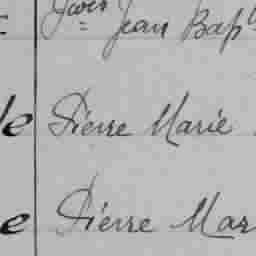 Jean Bap
le Pierre Marie
e Pierre Mar